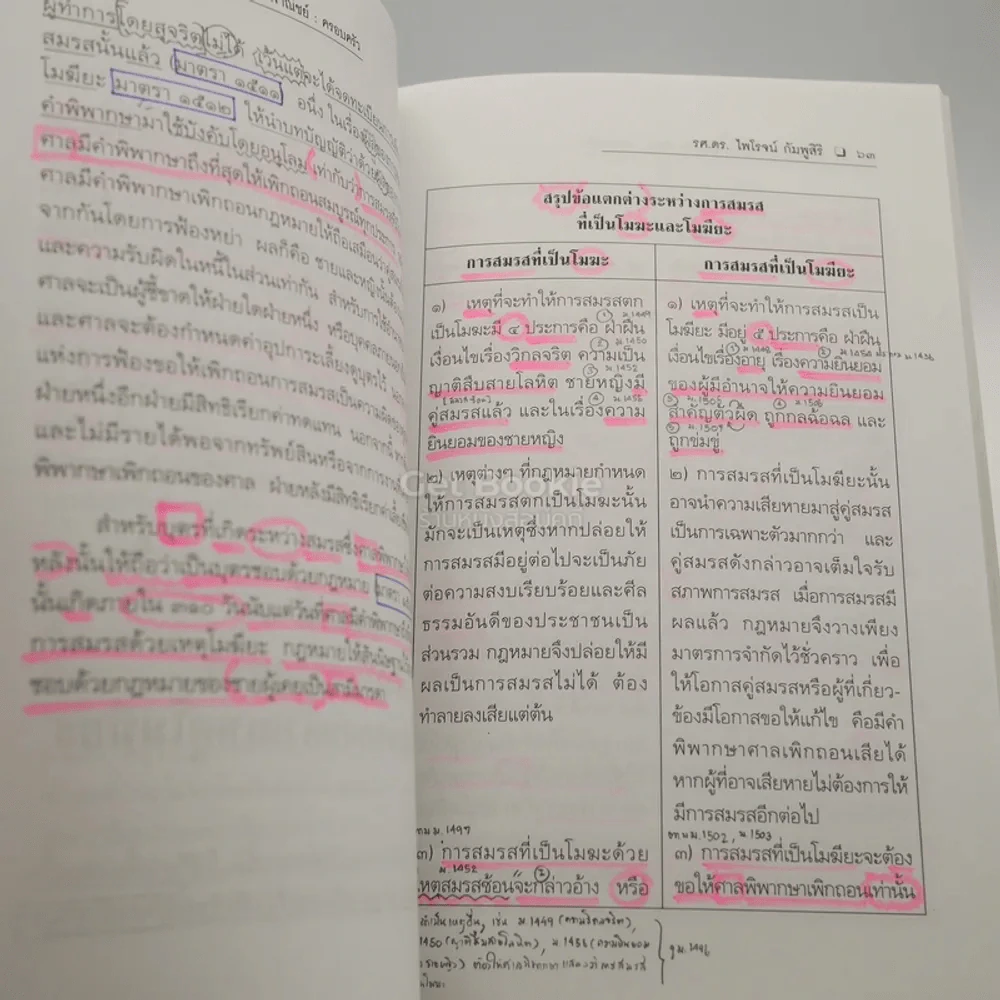 พาณิชย์ : ครอบครัว
ผู้ทำการโดยสุจริตไม่ได้ เว้นแต่จะได้จดทะเบียน
สมรสนั้นแล้ว (มาตรา ๑๕๑๑) อนึ่ง ในเรื่อง
โมฆียะ มาตรา ๑๕๑๒ ให้นำบทบัญญัติว่าด้วย
คำพิพากษามาใช้บังคับโดยอนุโลม เท่ากับว่า
ศาลมีคำพิพากษาถึงที่สุดให้เพิกถอนสมบูรณ์ทุกประการ
ศาลมีคำพิพากษาเพิกถอนกฎหมายให้ถือเสมือนว่า
จากกันโดยการฟ้องหย่า ผลก็คือ ชายและหญิงนั้นต้อง
และความรับผิดในหนี้ในส่วนเท่ากัน สำหรับการใช้อำนาจ
ศาลจะเป็นผู้ชี้ขาดให้ฝ่ายใดฝ่ายหนึ่ง หรือบุคคลภายนอก
และศาลจะต้องกำหนดค่าอุปการะเลี้ยงดูบุตรไว้
แห่งการฟ้องขอให้เพิกถอนการสมรสเป็นความผิดของ
ฝ่ายหนึ่งอีกฝ่ายมีสิทธิเรียกค่าทดแทน นอกจากนี้
และไม่มีรายได้พอจากทรัพย์สินหรือจากการงาน
พิพากษาเพิกถอนของศาล ฝ่ายหลังมีสิทธิเรียกค่าเลี้ยงชีพ
สำหรับบุตรที่เกิดระหว่างสมรสซึ่งศาลพิพากษา
หลังนั้นให้ถือว่าเป็นบุตรชอบด้วยกฎหมาย มาตรา
นั้นเกิดภายใน ๓๑๐ วันนับแต่วันที่ศาลมีคำพิพากษา
การสมรสด้วยเหตุโมฆียะ กฎหมายให้สันนิษฐาน
ชอบด้วยกฎหมายของชายผู้เคยเป็นสามีมารดา
รศ.ดร. ไพโรจน์ กัมพูสิริ ❏ ๖๓
สรุปข้อแตกต่างระหว่างการสมรส
ที่เป็นโมฆะและโมฆียะ
การสมรสที่เป็นโมฆะ
๑) เหตุที่จะทำให้การสมรสตก
① ม.1449
เป็นโมฆะมี ๔ ประการคือ ฝ่าฝืน
② ม.1450
เงื่อนไขเรื่องวิกลจริต ความเป็น
③ ม.1452
ญาติสืบสายโลหิต ชายหญิงมี
④ ม.1458
คู่สมรสแล้ว และในเรื่องความ
ยินยอมของชายหญิง
๒) เหตุต่างๆ ที่กฎหมายกำหนด
ให้การสมรสตกเป็นโมฆะนั้น
มักจะเป็นเหตุซึ่งหากปล่อยให้
การสมรสมีอยู่ต่อไปจะเป็นภัย
ต่อความสงบเรียบร้อยและศีล
ธรรมอันดีของประชาชนเป็น
ส่วนรวม กฎหมายจึงปล่อยให้มี
ผลเป็นการสมรสไม่ได้ ต้อง
ทำลายลงเสียแต่ต้น
ม.1497
๓) การสมรสที่เป็นโมฆะด้วย
ม.1452
เหตุสมรสซ้อนจะกล่าวอ้าง หรือ
การสมรสที่เป็นโมฆียะ
๑) เหตุที่จะทำให้การสมรสเป็น
โมฆียะ มีอยู่ ๕ ประการคือ ฝ่าฝืน
เงื่อนไขเรื่องอายุ เรื่องความยินยอม
ของผู้มีอำนาจให้ความยินยอม
③ ม.1505 ④ ม.1506
สำคัญตัวผิด ถูกกลฉ้อฉล และ
⑤ ม.1507
ถูกข่มขู่
๒) การสมรสที่เป็นโมฆียะนั้น
อาจนำความเสียหายมาสู่คู่สมรส
เป็นการเฉพาะตัวมากกว่า และ
คู่สมรสดังกล่าวอาจเต็มใจรับ
สภาพการสมรส เมื่อการสมรสมี
ผลแล้ว กฎหมายจึงวางเพียง
มาตรการจำกัดไว้ชั่วคราว เพื่อ
ให้โอกาสคู่สมรสหรือผู้ที่เกี่ยว-
ข้องมีโอกาสขอให้แก้ไข คือมีคำ
พิพากษาศาลเพิกถอนเสียได้
หากผู้ที่อาจเสียหายไม่ต้องการให้
มีการสมรสอีกต่อไป
ม.1502, ม.1503
๓) การสมรสที่เป็นโมฆียะจะต้อง
ขอให้ศาลพิพากษาเพิกถอนเท่านั้น
เช่น ม.1449 (ความวิกลจริต),
1450 (ญาติสืบสายโลหิต), ม.1458 (ความยินยอม
ม.1496
Get Bookie